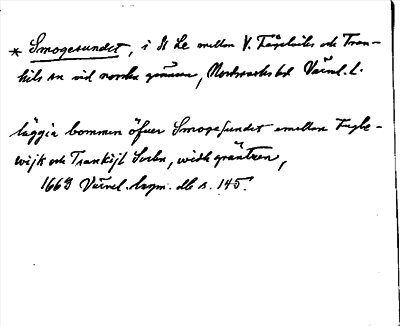 * Smogesundet, i St Le mellan V. Fågelviks och Tran-
kils sn vid norska gränsen, Nordmarks hd Värml. l.
läggia bommen öfver Smogesundet emellan Fugle-
wijk och Trankijl Sockn, widh gräntzen,
1669 Värml. s. 145.